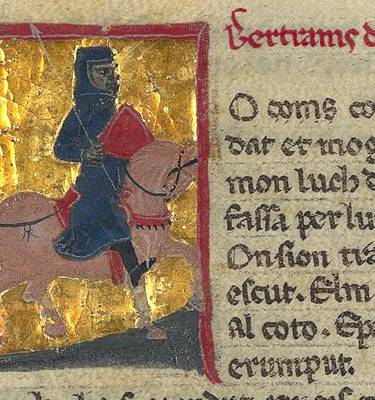 Bertrams d
O coms co
dat et mog
mon luch d
fassa per lu
On sion tra
escut. Elm
al coto. Ep
erumput.